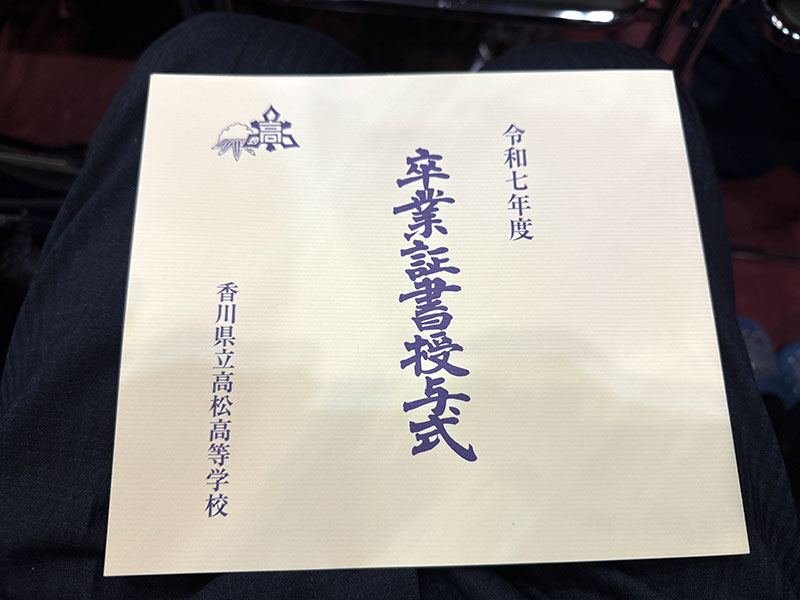 令和七年度
卒業証書授与式
高
香川県立高松高等学校